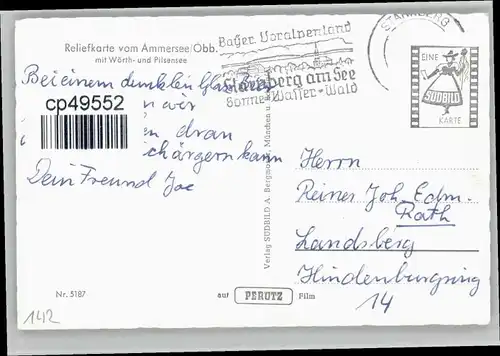 Reliefkarte vom Ammersee/Obb.
mit Wörth- und Pilsensee
Bayer. Voralpenland
Starnberg am See
Sonne-Wasser-Wald
STARNBERG
EINE
SÜDBILD
KARTE
Bei einem dunklen
cp49552
wir
dran
ärgern kann
Dein Freund Joe
Verlag SÜDBILD A. Bergmann, München
Herrn
Reiner Joh. Edm.
Rath
Landsberg
Hindenburgring
14
Nr. 5187
auf PERUTZ Film
142